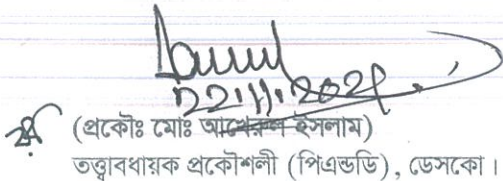 22.11.202
(প্রকৌঃ মোঃ ইসলাম)
তত্ত্বাবধায়ক প্রকৌশলী (পিএন্ডডি), ডেসকো।